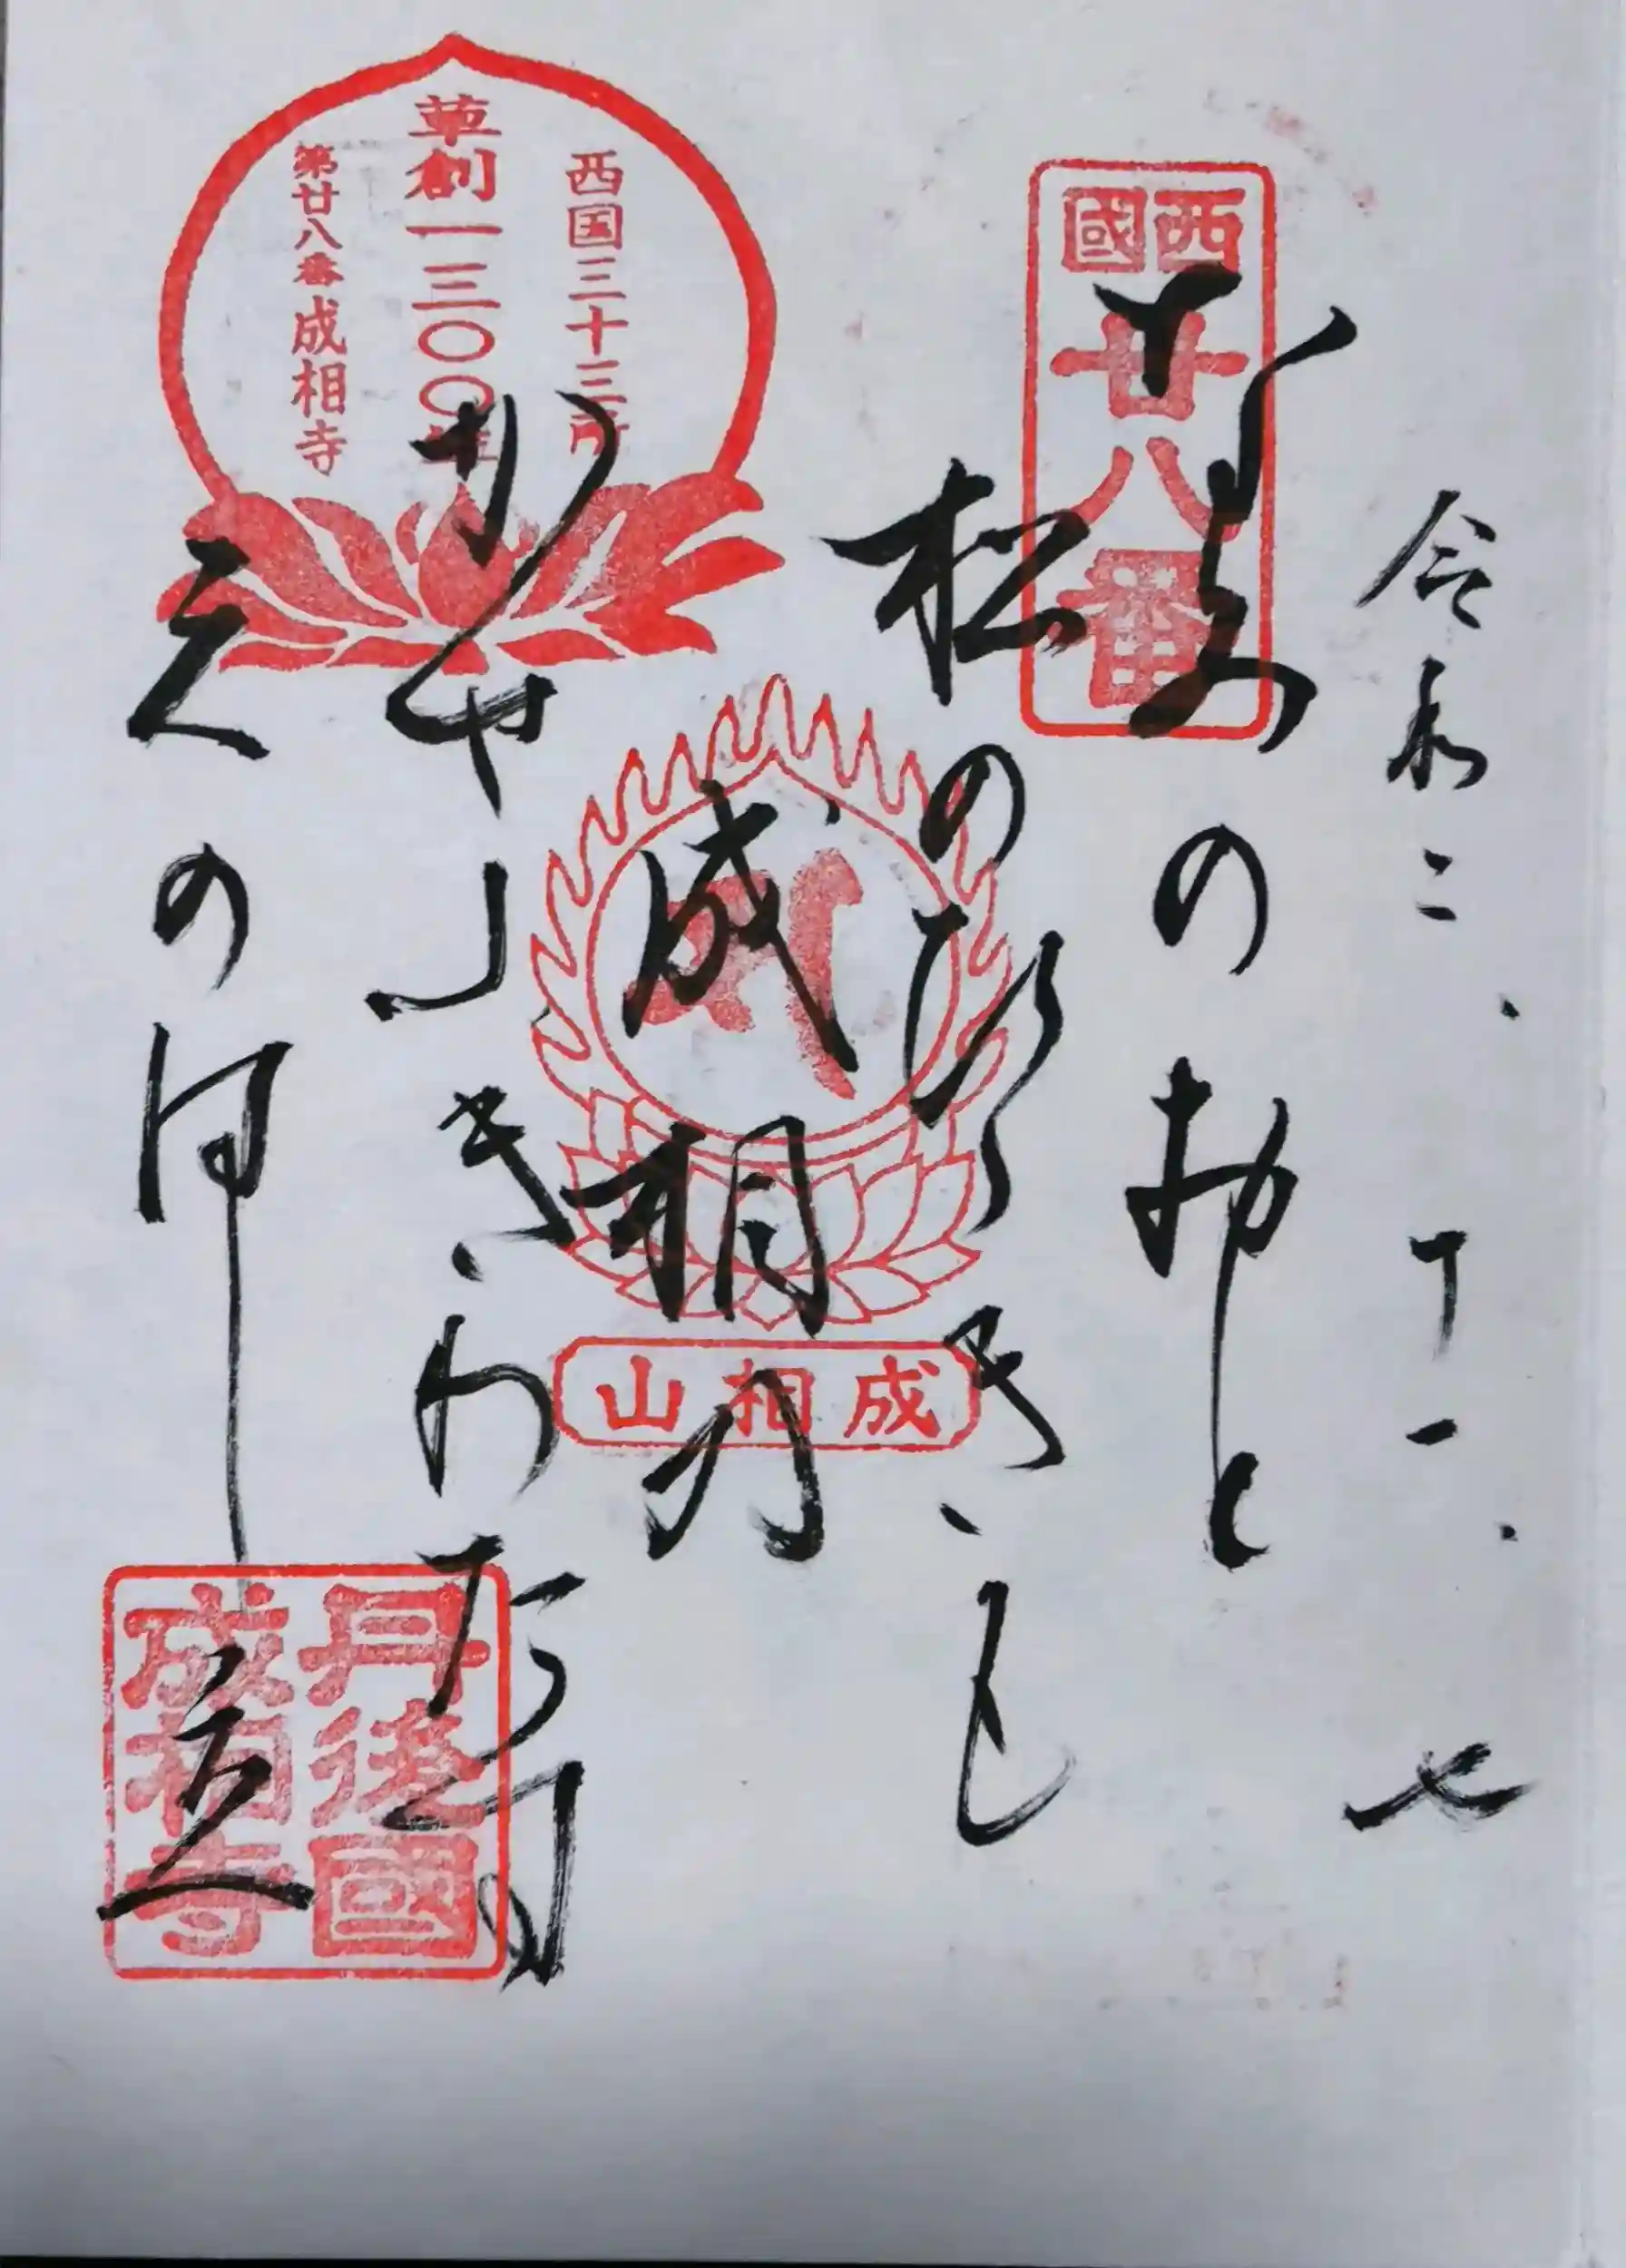 令和二、十一、七
西國
廿八番
なみのおと
松のひゞきも
成相の
かぜふきわたす
天の橋立
西国三十三所
草創一三〇〇年
第廿八番成相寺
成相山
丹後國
成相寺